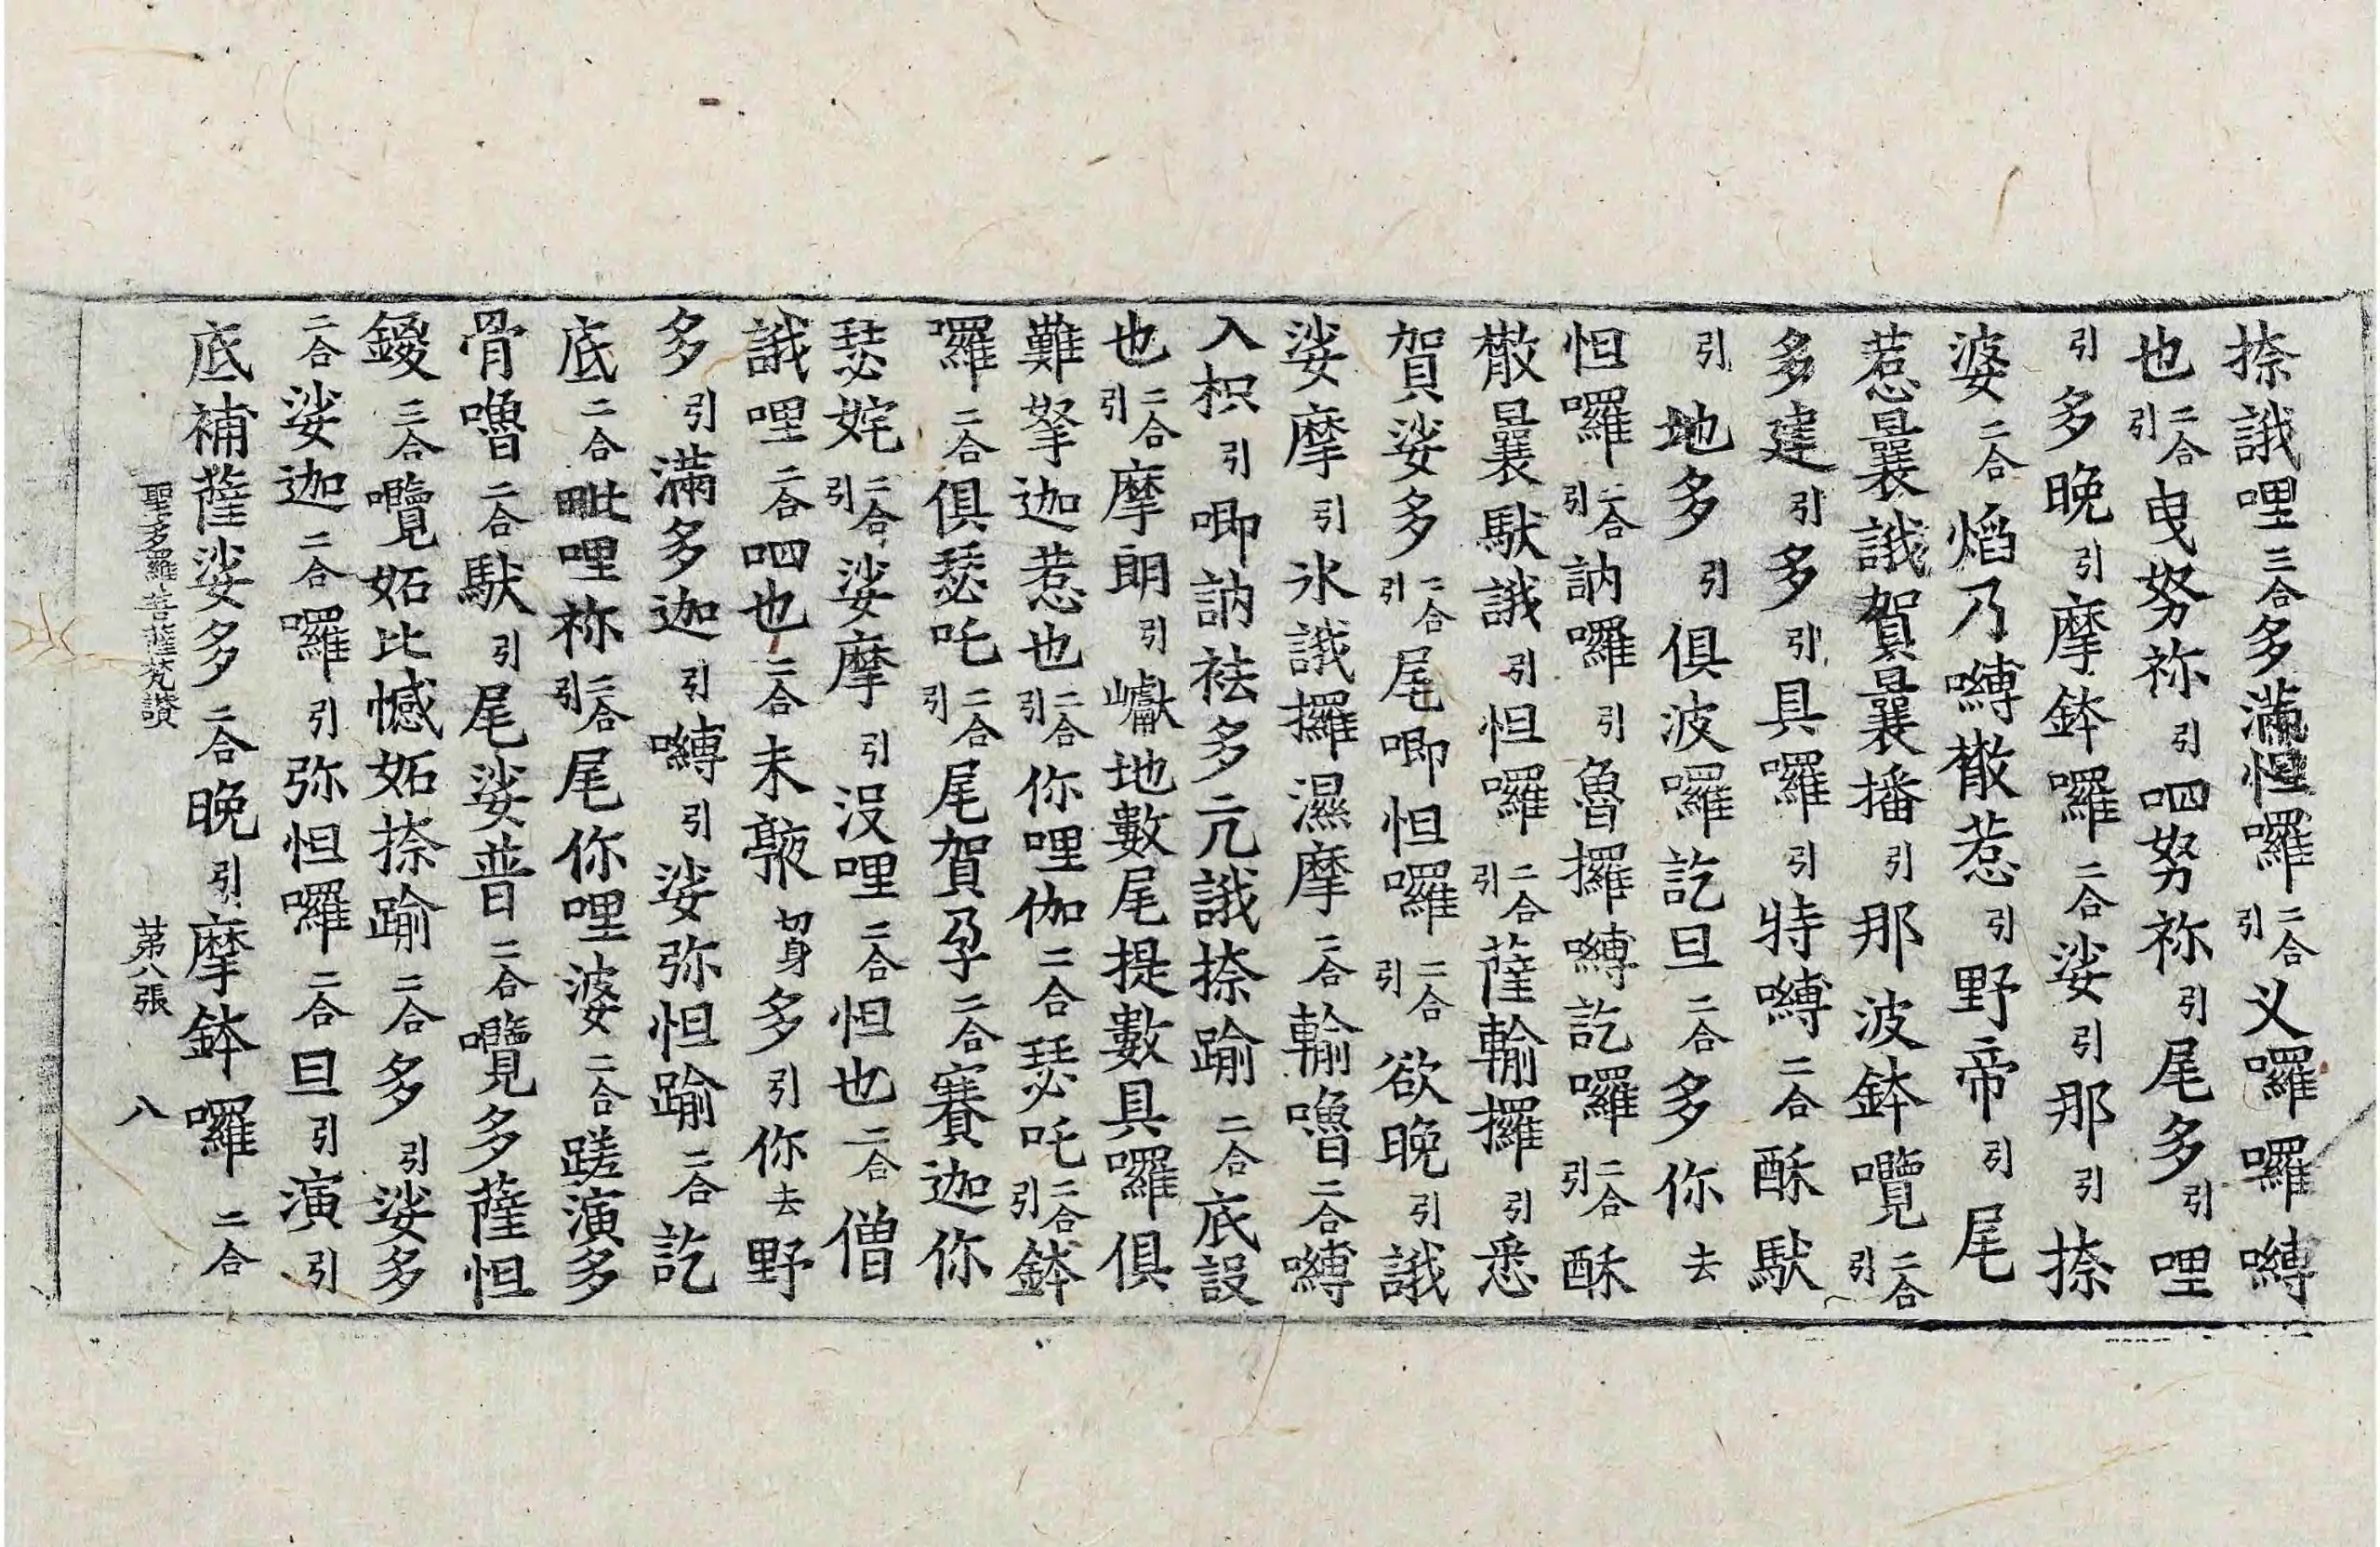 捺誐哩三合多滿怛囉二合引义囉囉嚩
也二合引曳努祢引呬努祢引尾多引哩
引多晚引摩鉢囉二合娑引那引捺
婆二合焰乃嚩橵惹引野帝引尾
惹曩誐賀曩播引那波鉢囕二合引
多建引多引具囉引特嚩二合酥馱
引地多引俱波囉訖旦二合多你去
怛囉二合引訥囉引魯攞嚩訖囉二合引酥
橵曩馱誐引怛囉二合引薩輸攞引悉
賀娑多二合引尾唧怛囉二合引欲晚引誐
娑摩引氷誐攞濕摩二合輸嚕二合嚩
入枳引唧訥祛多亢誐捺踰二合底設
也二合引摩朗引巘地數尾提數具囉俱
難拏迦惹也二合引你哩伽二合瑟吒二合引鉢
囉二合俱瑟吒二合引尾賀孕二合賽迦你
瑟姹二合引娑摩引没哩二合怛也二合僧
誐哩二合呬也二合未䫜切身多引你去野
多引滿多迦引嚩引娑弥怛踰二合訖
底二合毗哩祢二合引尾你哩婆二合蹉演多
骨嚕二合馱引尾娑普二合囕多薩怛
鑁三合囕妬比憾妬捺踰二合多引娑多
二合娑迦二合囉引弥怛囉二合旦引演引
底補薩娑多二合晚引摩鉢囉二合
聖多羅菩薩梵讃 苐八張 八